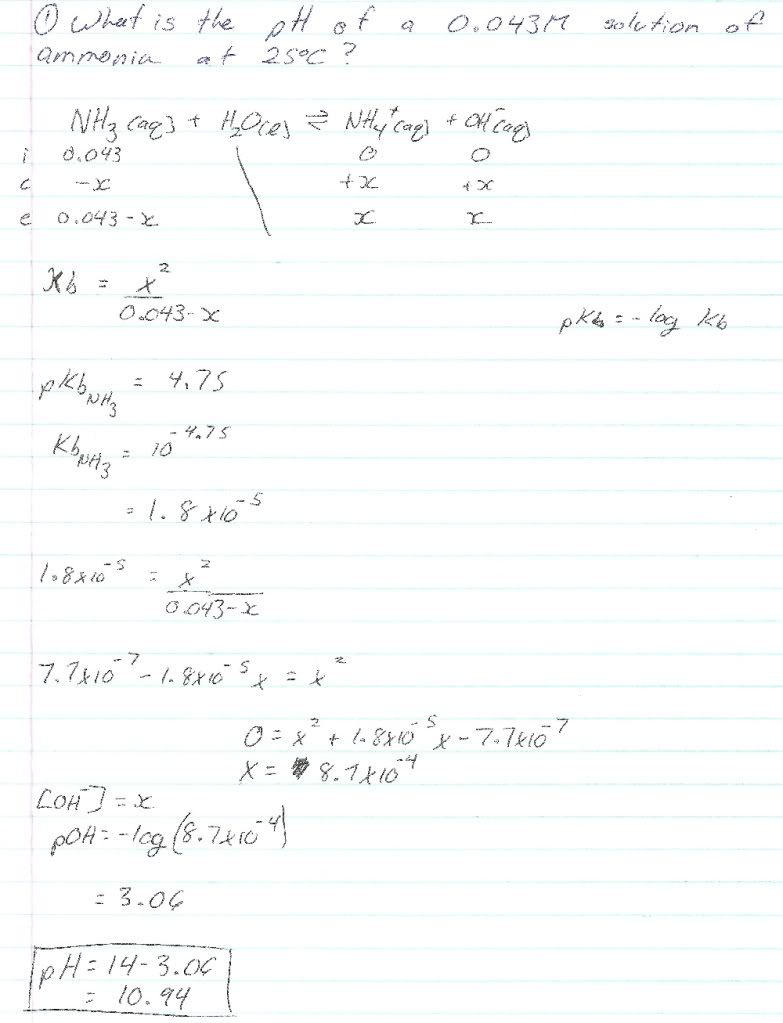 ① What is the pH of a 0.043M solution of
ammonia at 25°C?
NH₃(aq) + H₂O(l) ⇌ NH₄⁺(aq) + OH⁻(aq)
i 0.043 0 0
c -x +x +x
e 0.043-x x x
Kb = x² / 0.043-x
pKb = -log Kb
pKb NH₃ = 4.75
Kb NH₃ = 10^-4.75
= 1.8x10⁻⁵
1.8x10⁻⁵ = x² / 0.043-x
7.7x10⁻⁷ - 1.8x10⁻⁵x = x²
0 = x² + 1.8x10⁻⁵x - 7.7x10⁻⁷
x = 8.7x10⁻⁴
[OH⁻] = x
pOH = -log(8.7x10⁻⁴)
= 3.06
pH = 14-3.06
= 10.94